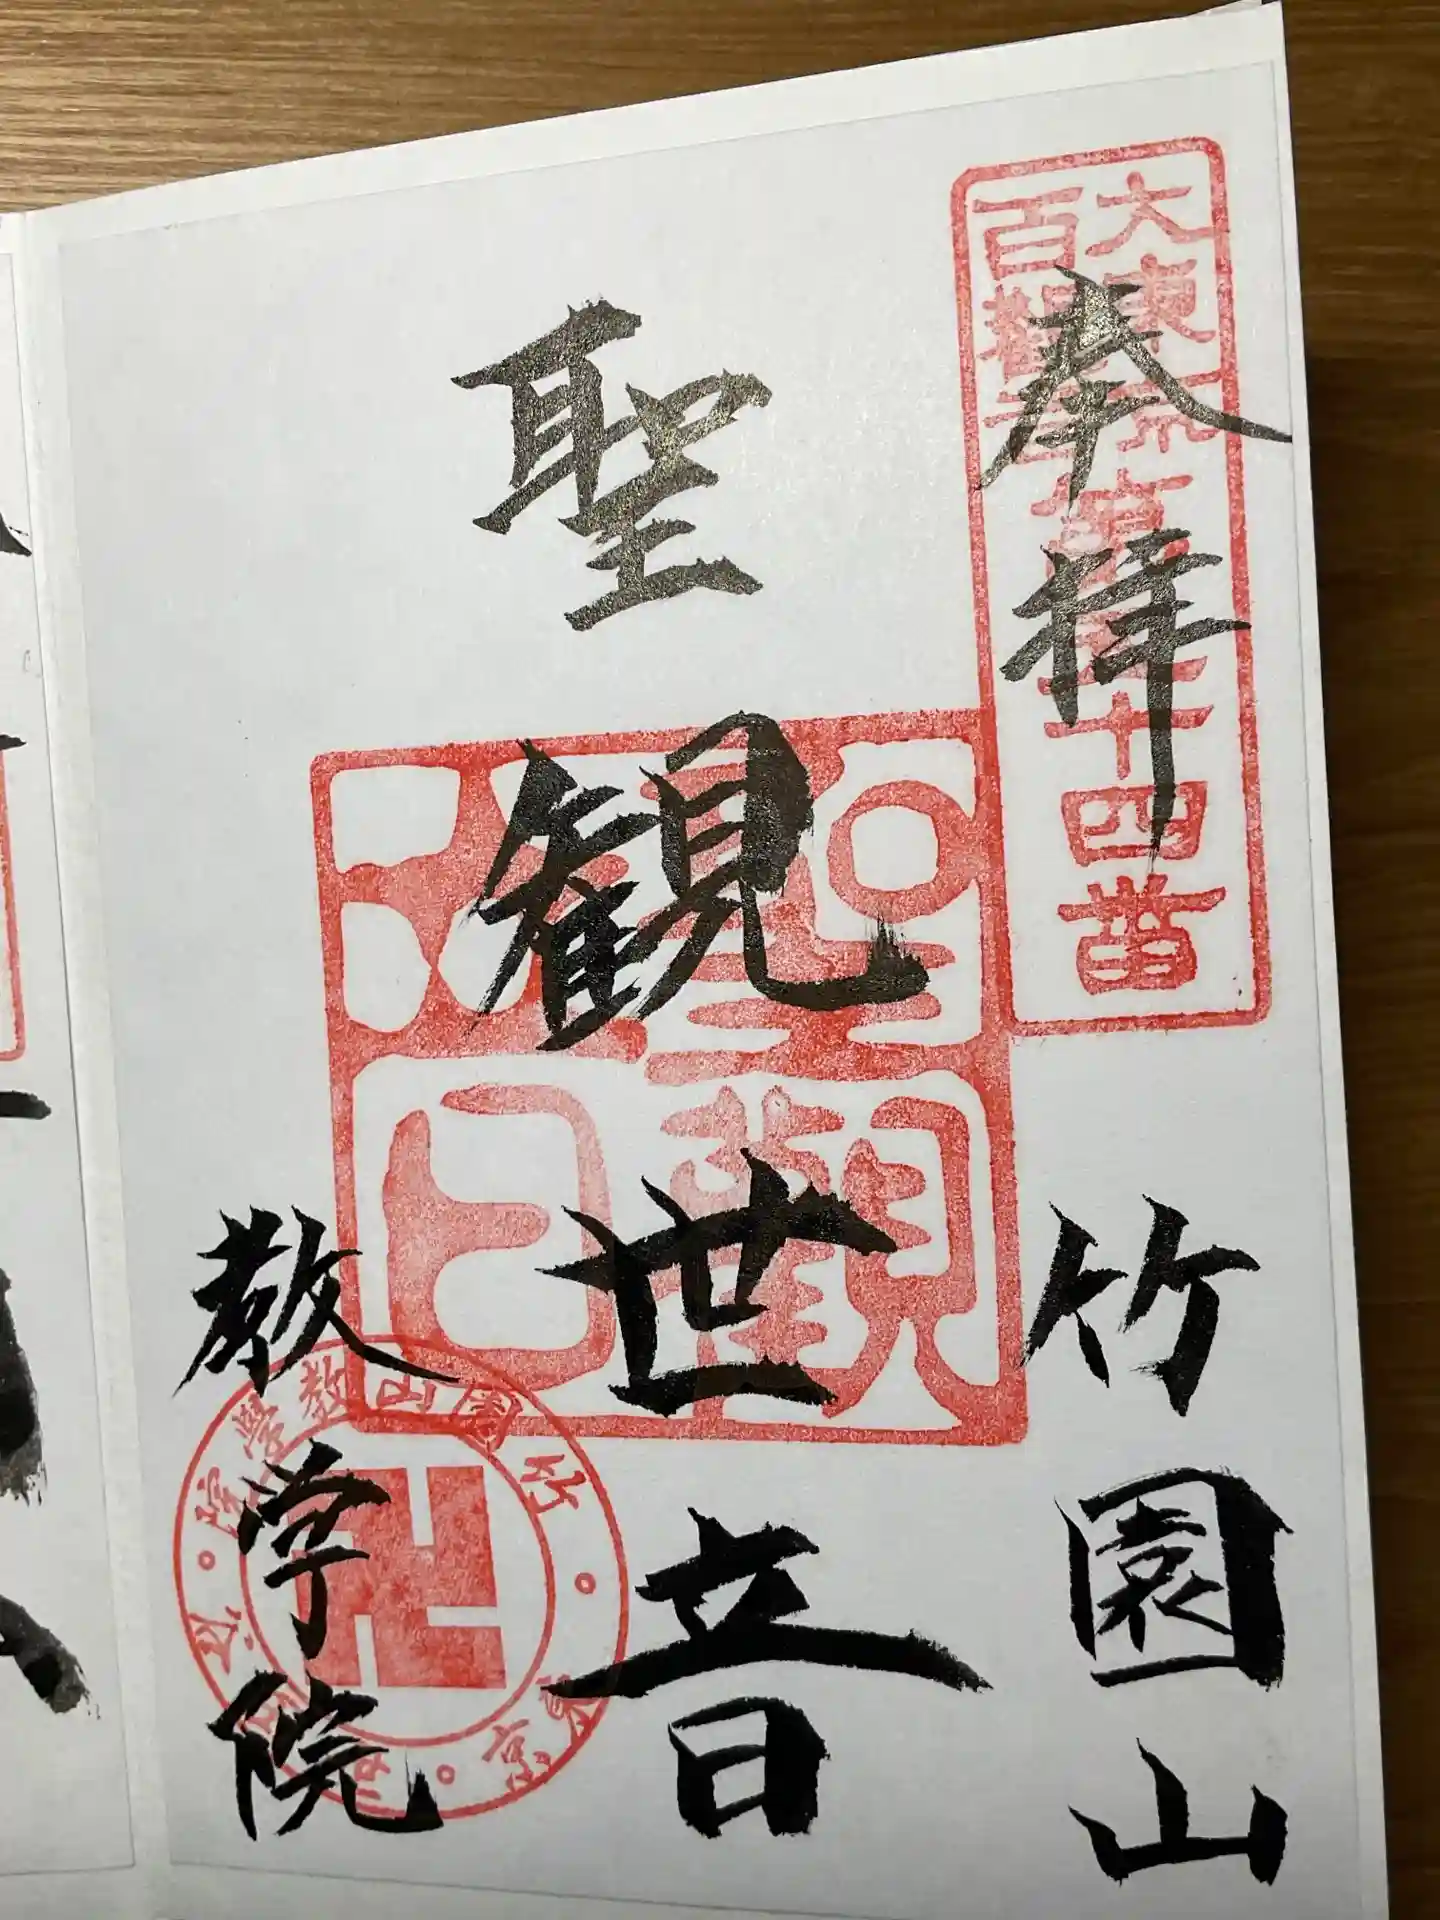 奉拝
大東京
百観音
第五十四番
竹園山
聖観世音
聖観
世音
教学院
竹園山教学院
東京